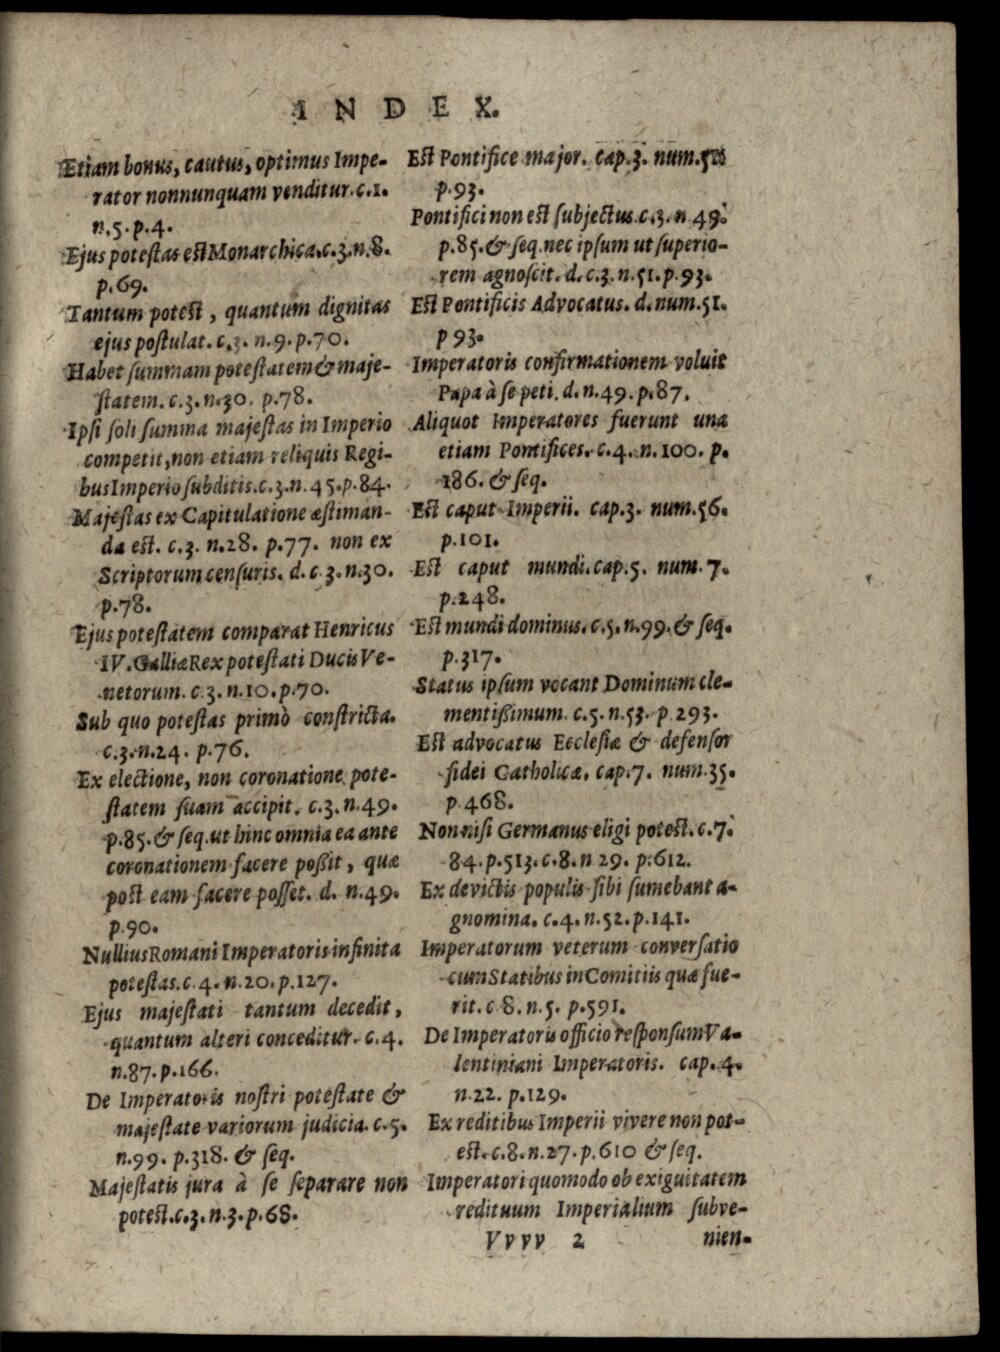 INDEX.
Etiam bonus, cautus, optimus Impe-
rator nonnunquam venditur. c.1.
n.5. p.4.
Ejus potestas est Monarchica. c.3. n.8.
p.69.
Tantum potest, quantum dignitas
ejus postulat. c.3. n.9. p.70.
Habet summam potestatem & maje-
statem. c.3. n.30. p.78.
Ipsi soli summa majestas in Imperio
competit, non etiam reliquis Regi-
bus Imperio subditis. c.3. n.45. p.84.
Majestas ex Capitulatione æstiman-
da est. c.3. n.28. p.77. non ex
Scriptorum censuris. d. c 3. n.30.
p.78.
Ejus potestatem comparat Henricus
IV. Galliæ Rex potestati Ducis Ve-
netorum. c 3. n.10. p.70.
Sub quo potestas primò constricta.
c.3. n.24. p.76.
Ex electione, non coronatione pote-
statem suam accipit. c.3. n.49.
p.85. & seq. ut hinc omnia ea ante
coronationem facere poßit, quæ
post eam facere posset. d. n.49.
p.90.
Nullius Romani Imperatoris infinita
potestas. c 4. n.20. p.127.
Ejus majestati tantum decedit,
quantum alteri conceditur. c.4.
n.87. p.166.
De Imperatoris nostri potestate &
majestate variorum judicia. c.5.
n.99. p.318. & seq.
Majestatis jura à se separare non
potest. c.3. n.3. p.68.
Est Pontifice major. cap.3. num.
p.93.
Pontifici non est subjectus. c.3. n 49.
p.85. & seq. nec ipsum ut superio-
rem agnoscit. d. c.3. n.51. p.93.
Est Pontificis Advocatus. d. num.51.
p 93.
Imperatoris confirmationem voluit
Papa à se peti. d. n.49. p.87.
Aliquot Imperatores fuerunt una
etiam Pontifices. c.4. n.100. p.
186. & seq.
Est caput Imperii. cap.3. num.56.
p.101.
Est caput mundi. cap.5. num.7.
p.248.
Est mundi dominus. c.5. n.99. & seq.
p.317.
Status ipsum vocant Dominum cle-
mentißimum. c.5. n.53. p 293.
Est advocatus Ecclesiæ & defensor
fidei Catholicæ. cap.7. num.35.
p 468.
Non nisi Germanus eligi potest. c.7.
84. p.513. c.8. n 29. p.612.
Ex devictis populis sibi sumebant a-
gnomina. c.4. n.52. p.141.
Imperatorum veterum conversatio
cum Statibus in Comitiis quæ fue-
rit. c 8. n.5. p.591.
De Imperatoris officio responsum Va-
lentiniani Imperatoris. cap.4.
n.22. p.129.
Ex reditibus Imperii vivere non pot-
est. c.8. n.27. p.610 & seq.
Imperatori quomodo ob exiguitatem
redituum Imperialium subve-
Vvvv 2 nien-